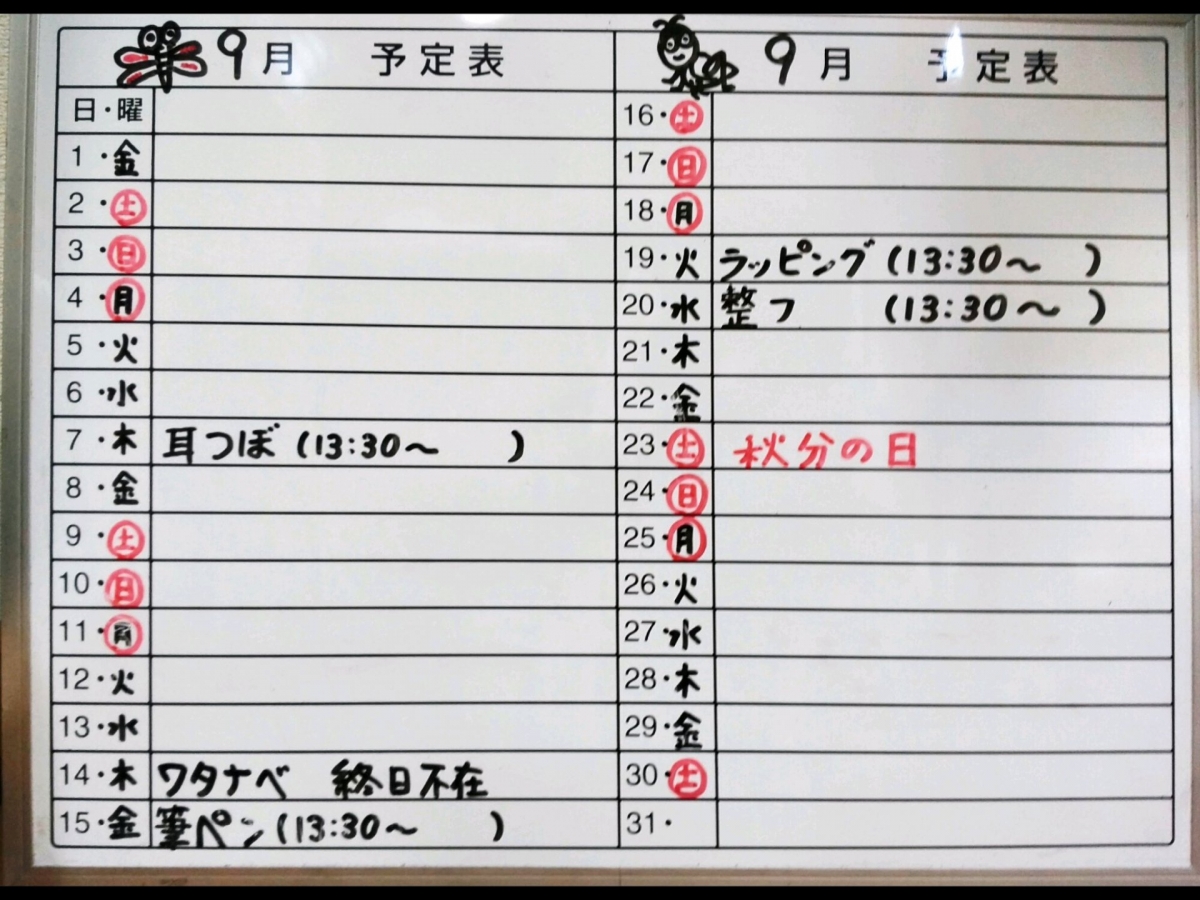 9月 予定表
日・曜
1・金
2・土
3・日
4・月
5・火
6・水
7・木 耳つぼ (13:30～ )
8・金
9・土
10・日
11・月
12・火
13・水
14・木 ワタナベ 終日不在
15・金 筆ペン (13:30～ )
9月 予定表
16・土
17・日
18・月
19・火 ラッピング (13:30～ )
20・水 整フ (13:30～ )
21・木
22・金
23・土 秋分の日
24・日
25・月
26・火
27・水
28・木
29・金
30・土
31・